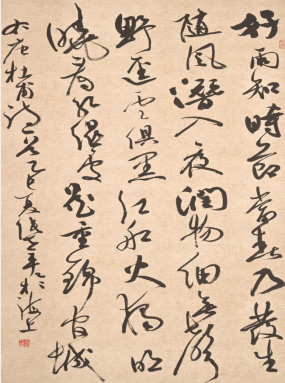 好雨知時節當春乃發生
随風潛入夜潤物細無聲
野逕雲俱黑江船火獨明
曉看紅濕處花重錦官城
右唐杜甫詩一首乙巳夏於海上